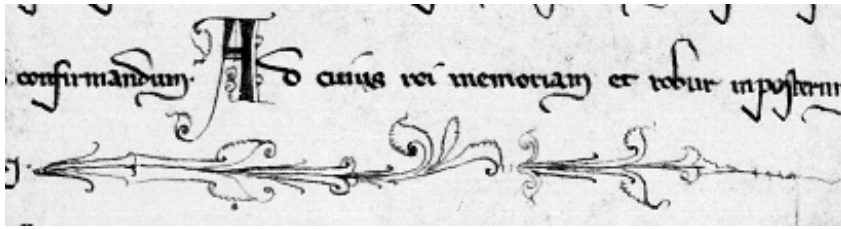 confirmandum. Ad cuius rei memoriam et robur inposterum